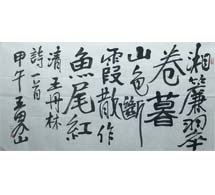 湘簾翠
卷暮
山色斷
霞散作
魚尾紅
清 王丹林
詩一首
甲午 王界山